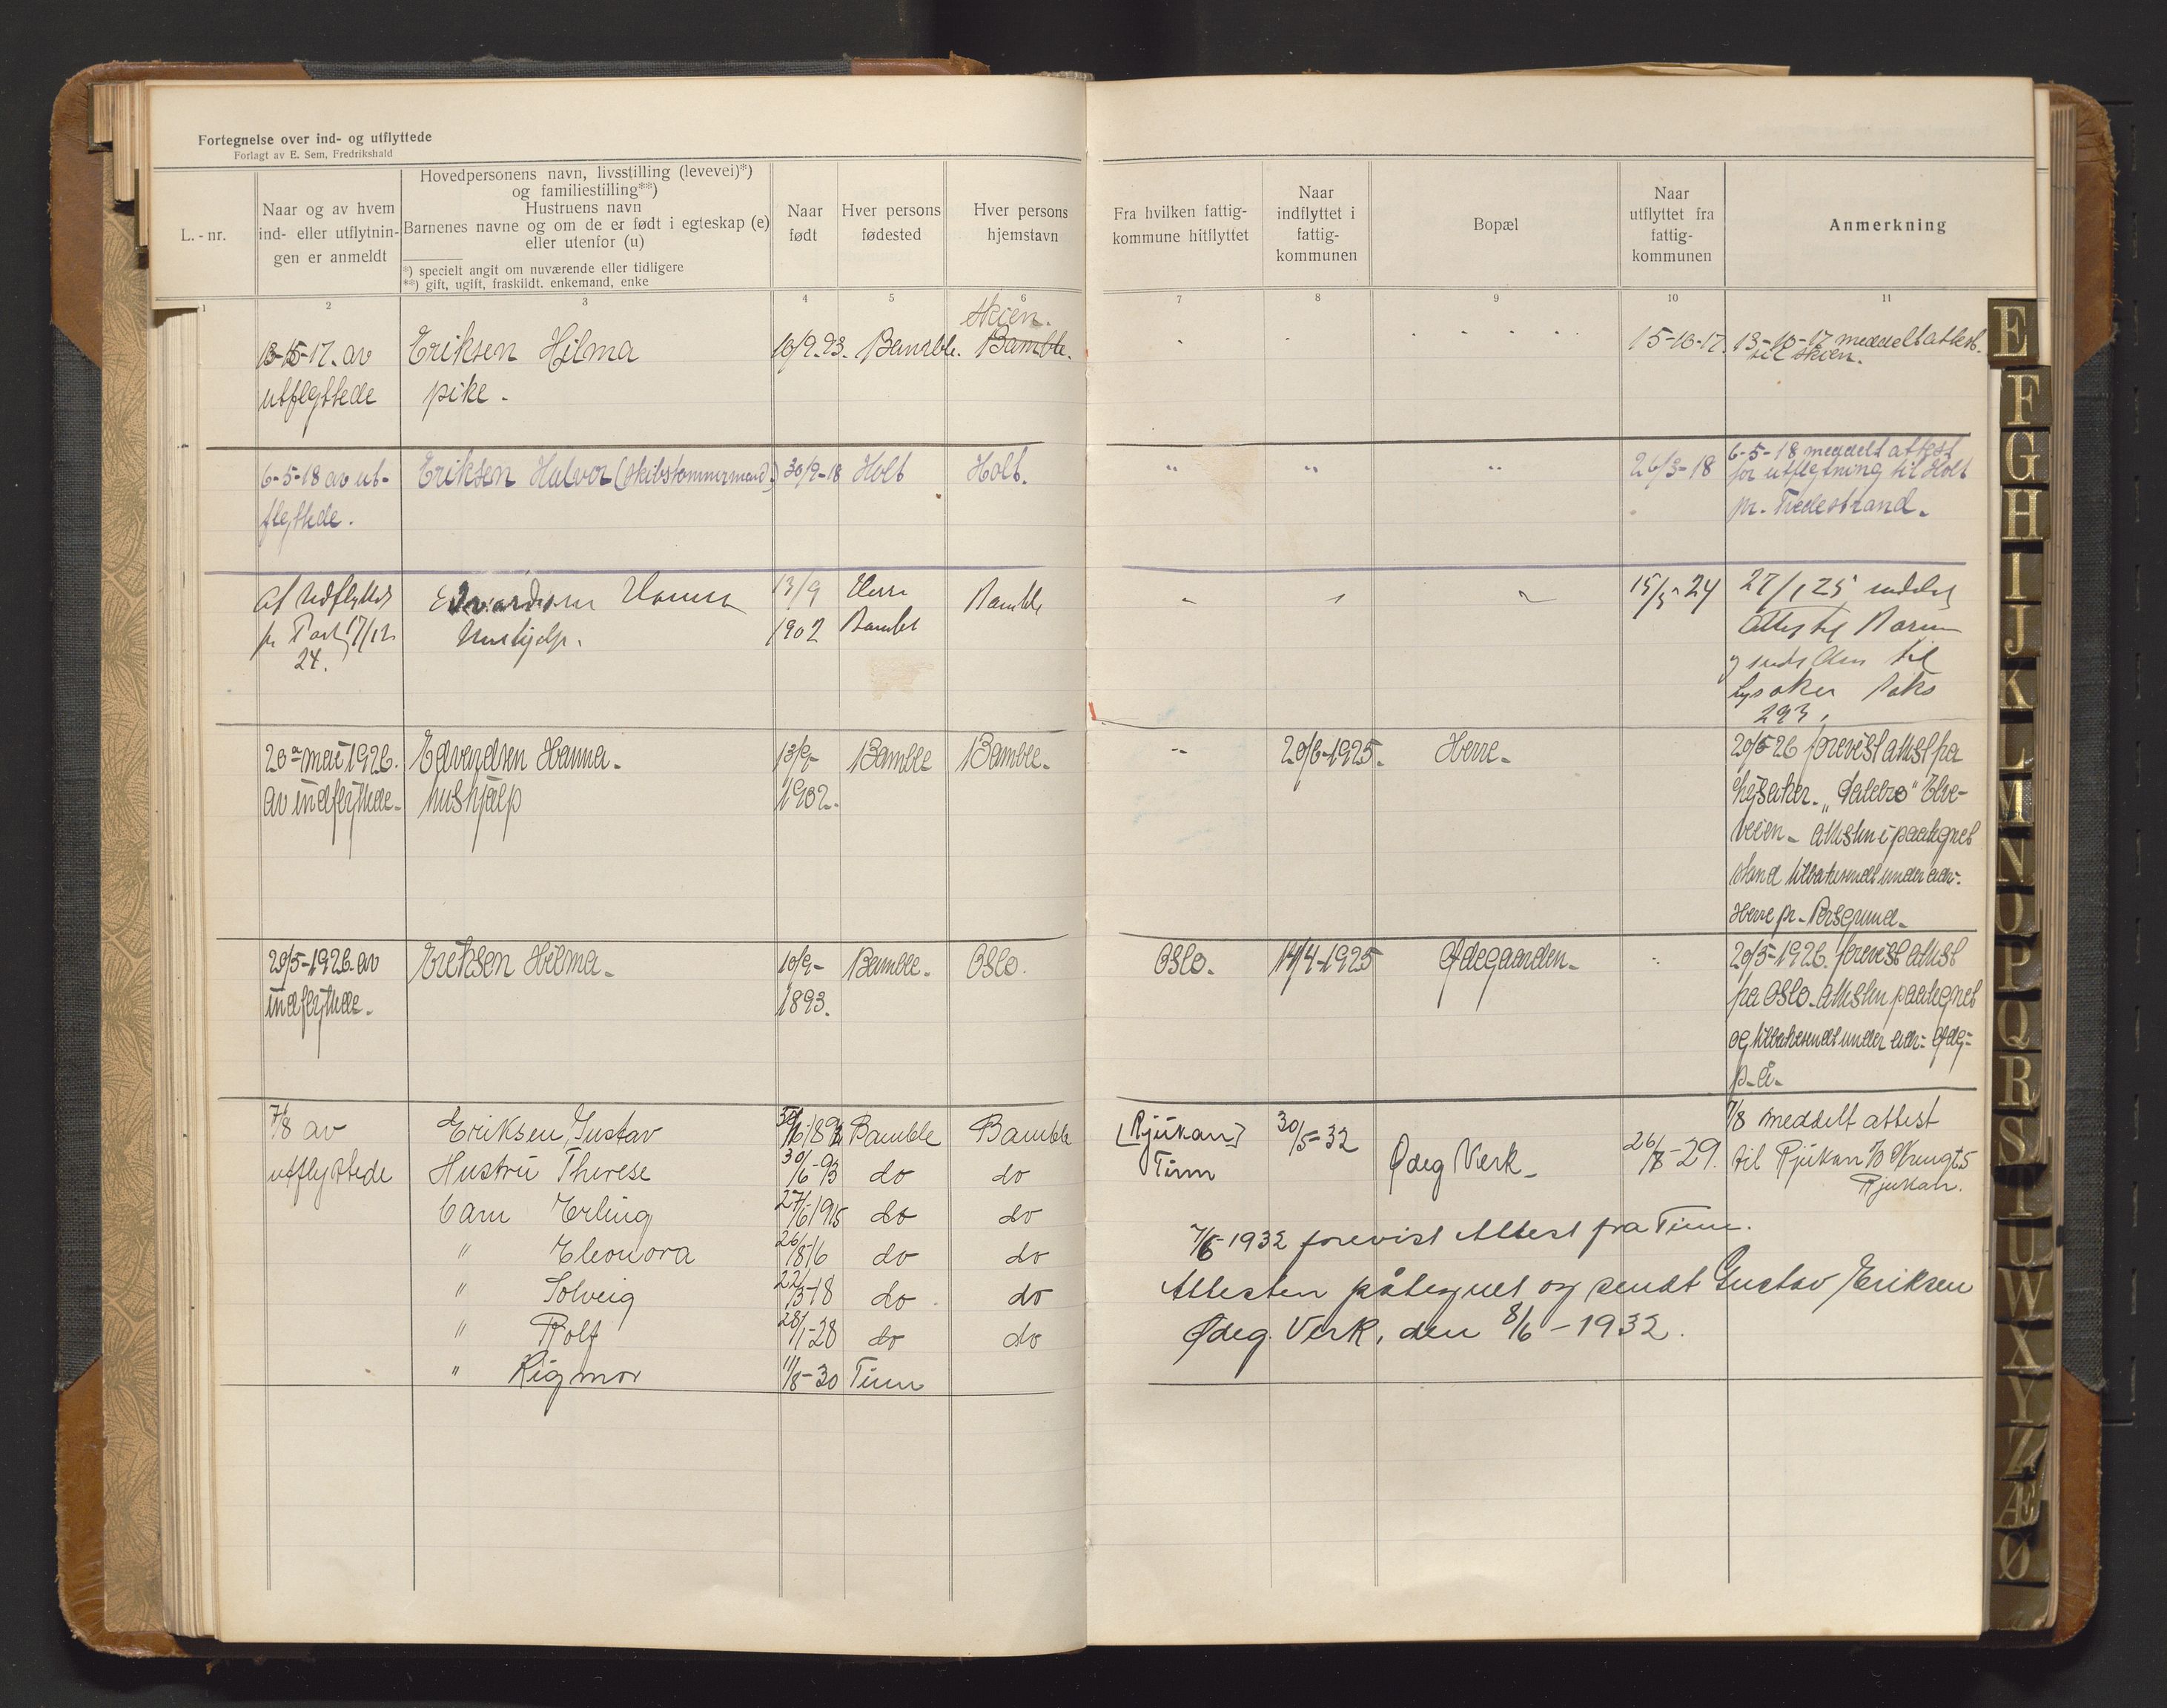 Fortegnelse over ind- og utflyttede
Forlagt av E. Sem, Fredrikshald
L.-nr.
Naar og av hvem
ind- eller utflytnin-
gen er anmeldt
Hovedpersonens navn, livsstilling (levevei)*)
og familiestilling**)
Hustruens navn
Barnenes navne og om de er født i egteskap (e)
eller utenfor (u)
*) specielt angit om nuværende eller tidligere
**) gift, ugift, fraskildt. enkemand, enke
Naar
født
Hver persons
fødested
Hver persons
hjemstavn
Fra hvilken fattig-
kommune hitflyttet
Naar
indflyttet i
fattig-
kommunen
Bopæl
Naar
utflyttet fra
fattig-
kommunen
Anmerkning
1 2 3 4 5 6 7 8 9 10 11
Skien.
av Eriksen Hilma 10/9-93. Bamble. Bamble. 15-10-17. 13-10-17 meddelt attest.
til Skien.
utflyttede pike.
6-5-18 av ut- Eriksen Halvor (skibstømmermand.) 30/9-18 Holt Holt. " " " 26/3-18 6-5-18 meddelt attest
flyttede. for utflytning til Holt
pr. Tvedestrand.
Af Udflytted Hanna 13/9 Herre Bamble 15/5-24 27/1 25
pr Post 17/12 1902 Bamble
24. til
Lysaker Boks
293.
20de mai 1926. Edvardsen Hanna. 13/9- Bamble Bamble. 20/6-1925. Herre. 20/5 26 forevist attest fra
av indflyttede. hushjælp 1902. Lysaker. "Dalebro" Elve-
veien. attesten i paategnet
stand tilbakesendt under adr.
Herre pr. Porsgrund.
20/5-1926. av Eriksen Hilma. 10/9- Bamble. Oslo. Oslo. 14/4-1925 Ødegaarden. 20/5-1926. forevist attest
indflyttede. 1893. fra Oslo. Attesten paategnet
og tilbakesendt under adr: Ødeg-
p.å.
7/8 av Eriksen, Gustav Bamble Bamble [Rjukan] 30/5-32 Ødeg Verk. 26/7-29. 7/8 meddelt attest
utflyttede Hustru Therese 30/6-93 do do Tinn til Rjukan
Rjukan.
Barn Erling 27/6 1915 do do
" Eleonora 26/8 16 do do 7/6 1932 forevist Attest fra Tinn.
" Solveig 22/3-18 do do Attesten påtegnet og sendt Gustav Eriksen
" Rolf 28/1-28 do do Ødeg. Verk, den 8/6-1932.
" Rigmor 11/8-30 Tinn
E
F
G
H
I
J
K
L
M
N
O
P
Q
R
S
T
U
W
X
Y
Z
Æ
Ø